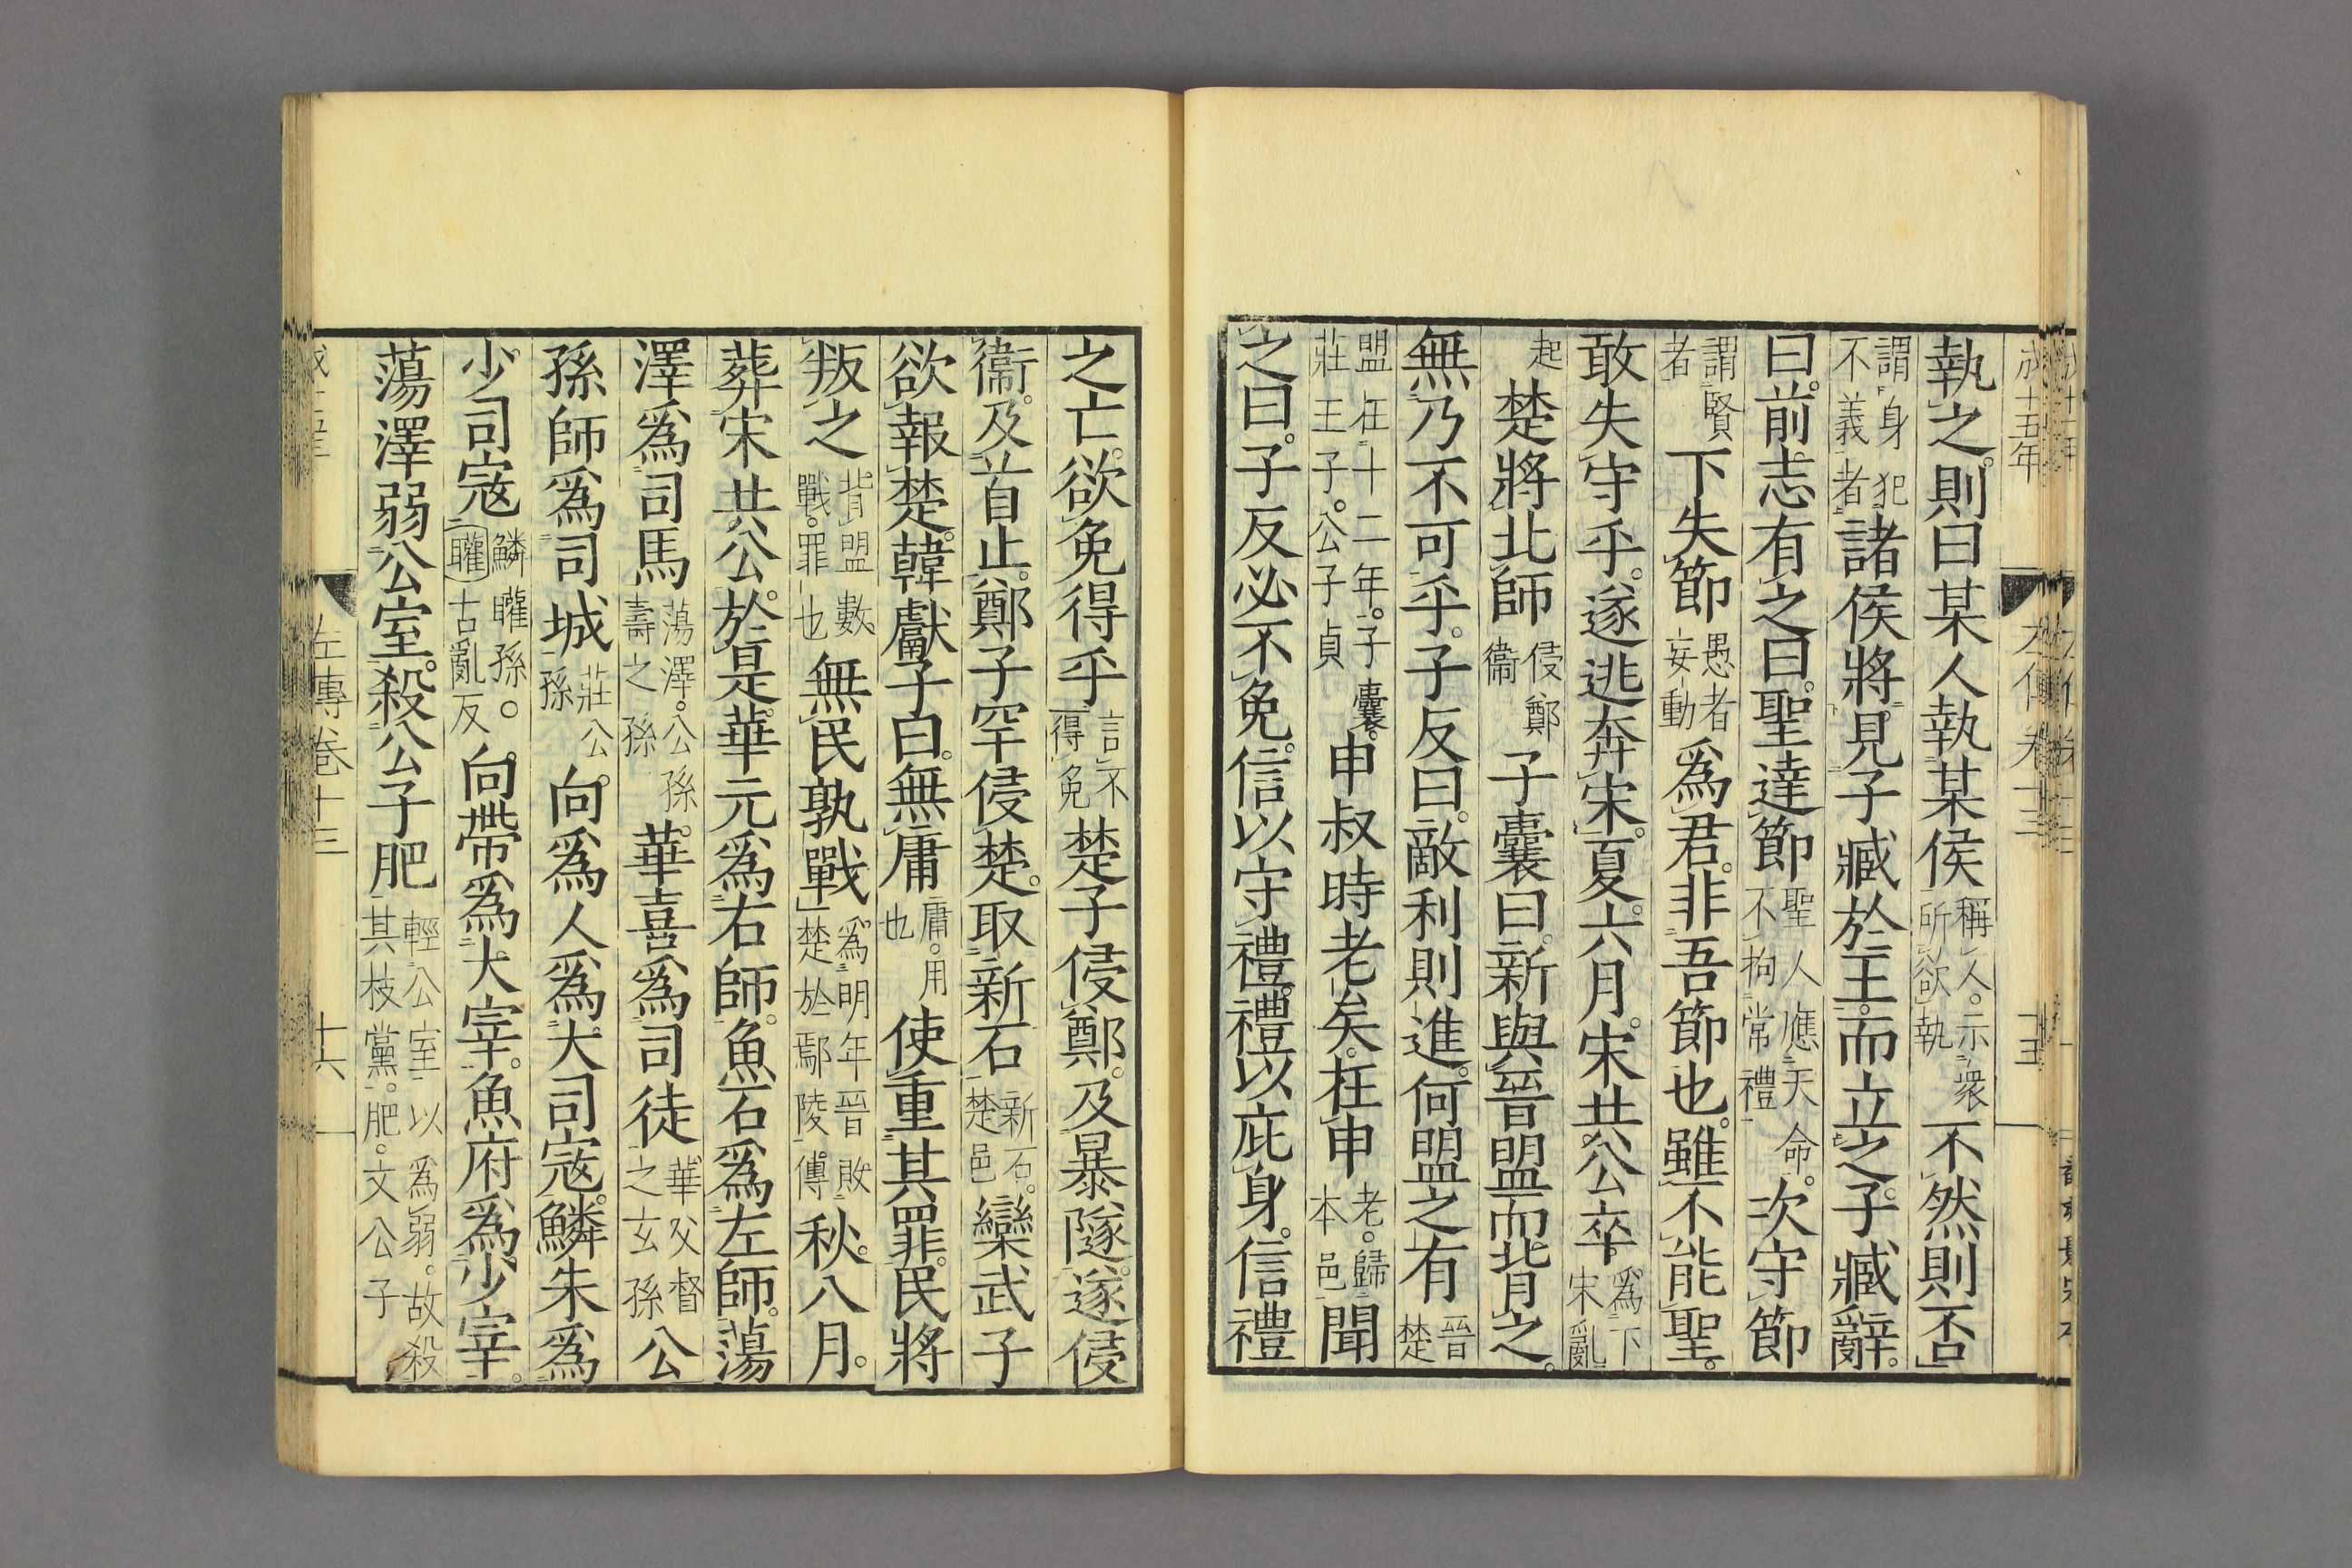 成十五年
左傳卷十三
十五
執之。則曰某人執某侯稱人。示衆所欲執不然則否
謂身犯不義者諸侯將見子臧於王。而立之。子臧辭。
曰。前志有之曰。聖達節聖人應天命。不拘常禮次守節
謂賢者下失節愚者妄動爲君。非吾節也。雖不能聖。
敢失守乎。遂逃奔宋。夏。六月。宋共公卒。爲下宋亂
起楚將北師侵鄭衞子囊曰。新與晉盟而背之。
無乃不可乎。子反曰。敵利則進。何盟之有晉楚
盟在十二年。子囊。莊王子。公子貞申叔時老矣。在申老。歸本邑聞
之曰。子反必不免。信以守禮。禮以庇身。信禮
之亡。欲免得乎言不得免楚子侵鄭。及暴隧。遂侵
衞。及首止。鄭子罕侵楚。取新石新石。楚邑欒武子
欲報楚。韓獻子曰。無庸庸。用也使重其罪。民將
叛之背盟數戰。罪也無民孰戰爲明年晉敗楚於鄢陵傳秋。八月。
葬宋共公。於是華元爲右師。魚石爲左師。蕩
澤爲司馬蕩澤。公孫壽之孫華喜爲司徒華父督之玄孫公
孫師爲司城莊公孫向爲人爲大司寇。鱗朱爲
少司寇鱗矔孫。矔古亂反向帶爲大宰。魚府爲少宰。
蕩澤弱公室。殺公子肥輕公室以爲弱。故殺其枝黨。肥。文公子
左傳卷十三
十六